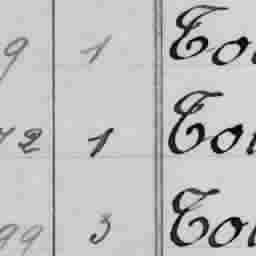 9 1 To
72 1 To
99 3 To